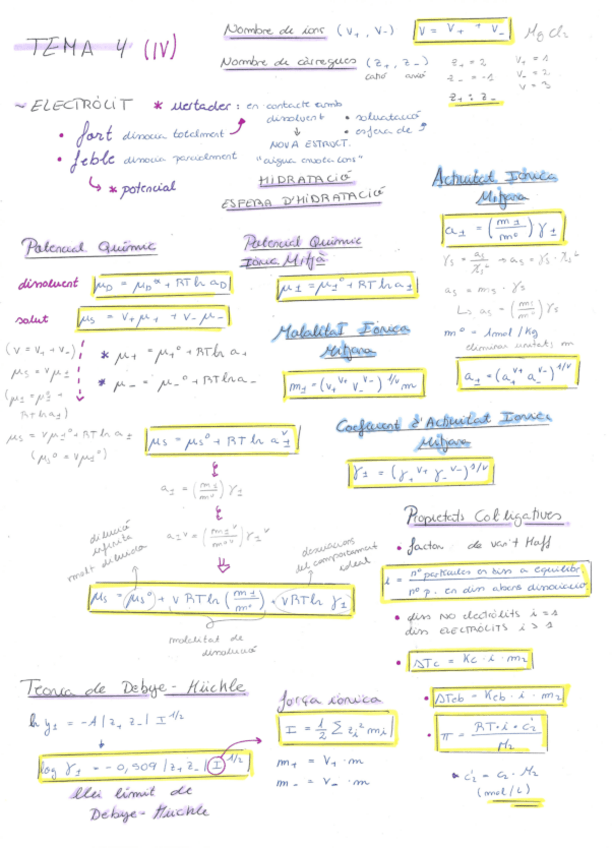 TEMA 4 (IV)
Nombre de ions (V+, V-) V = V+ + V- MgCl2
Nombre de càrregues (z+, z-) z+ = 2 V+ = 1
catió anió z- = -1 V- = 2
z+ : z- V = 3
~ ELECTRÒLIT * vertader : en contacte amb
dissolvent • solvatació
• fort dissocia totalment ↓ • esfera de
NOVA ESTRUCT.
• feble dissocia parcialment "aigua envolta ions"
↳ * potencial
HIDRATACIÓ
ESFERA D'HIDRATACIÓ
Activitat Iònica
Mitjana
a± = (m±/m°) γ±
as = ms · γs
m° = 1mol/kg
eliminar unitats m
a± = (a+^V+ a-^V-)^1/V
Potencial Químic
dissolvent μD = μD* + RT ln aD
solut μs = V+μ+ + V-μ-
(V = V+ + V-) * μ+ = μ+° + RT ln a+
μs = Vμ± * μ- = μ-° + RT ln a-
(μ± = μ±° +
RT ln a±)
μs = Vμ±° + RT ln a±
(μs° = Vμ±°)
Potencial Químic
Iònic Mitjà
μ± = μ±° + RT ln a±
Molalitat Iònica
Mitjana
m± = (V+^V+ V-^V-)^1/V m
Coeficient d'Activitat Iònica
Mitjana
γ± = (γ+^V+ γ-^V-)^(1/V)
μs = μs° + RT ln a±^V
a± = (m±/m°) γ±
a±^V = (m±^V/m°^V) γ±^V
dilució
infinita
molt diluida
desviacions
del comportament
ideal
μs = μs° + V RT ln (m±/m°) + V RT ln γ±
molalitat de
dissolució
Propietats Col·ligatives
• factor de van't Hoff
i = nº partícules en diss a equilibri / nº p. en diss abans dissociació
• diss NO electròlits i = 1
diss ELECTRÒLITS i > 1
• ΔTc = Kc · i · m2
• ΔTeb = Keb · i · m2
• π = RT · i · c'2 / M2
• c'2 = c2 · M2
(mol/L)
Teoria de Debye-Hückle
ln γ± = -A |z+ z-| I^1/2
log γ± = -0,509 |z+ z-| I^1/2
llei límit de
Debye-Hückle
força iònica
I = 1/2 Σ zi² mi
m+ = V+ · m
m- = V- · m